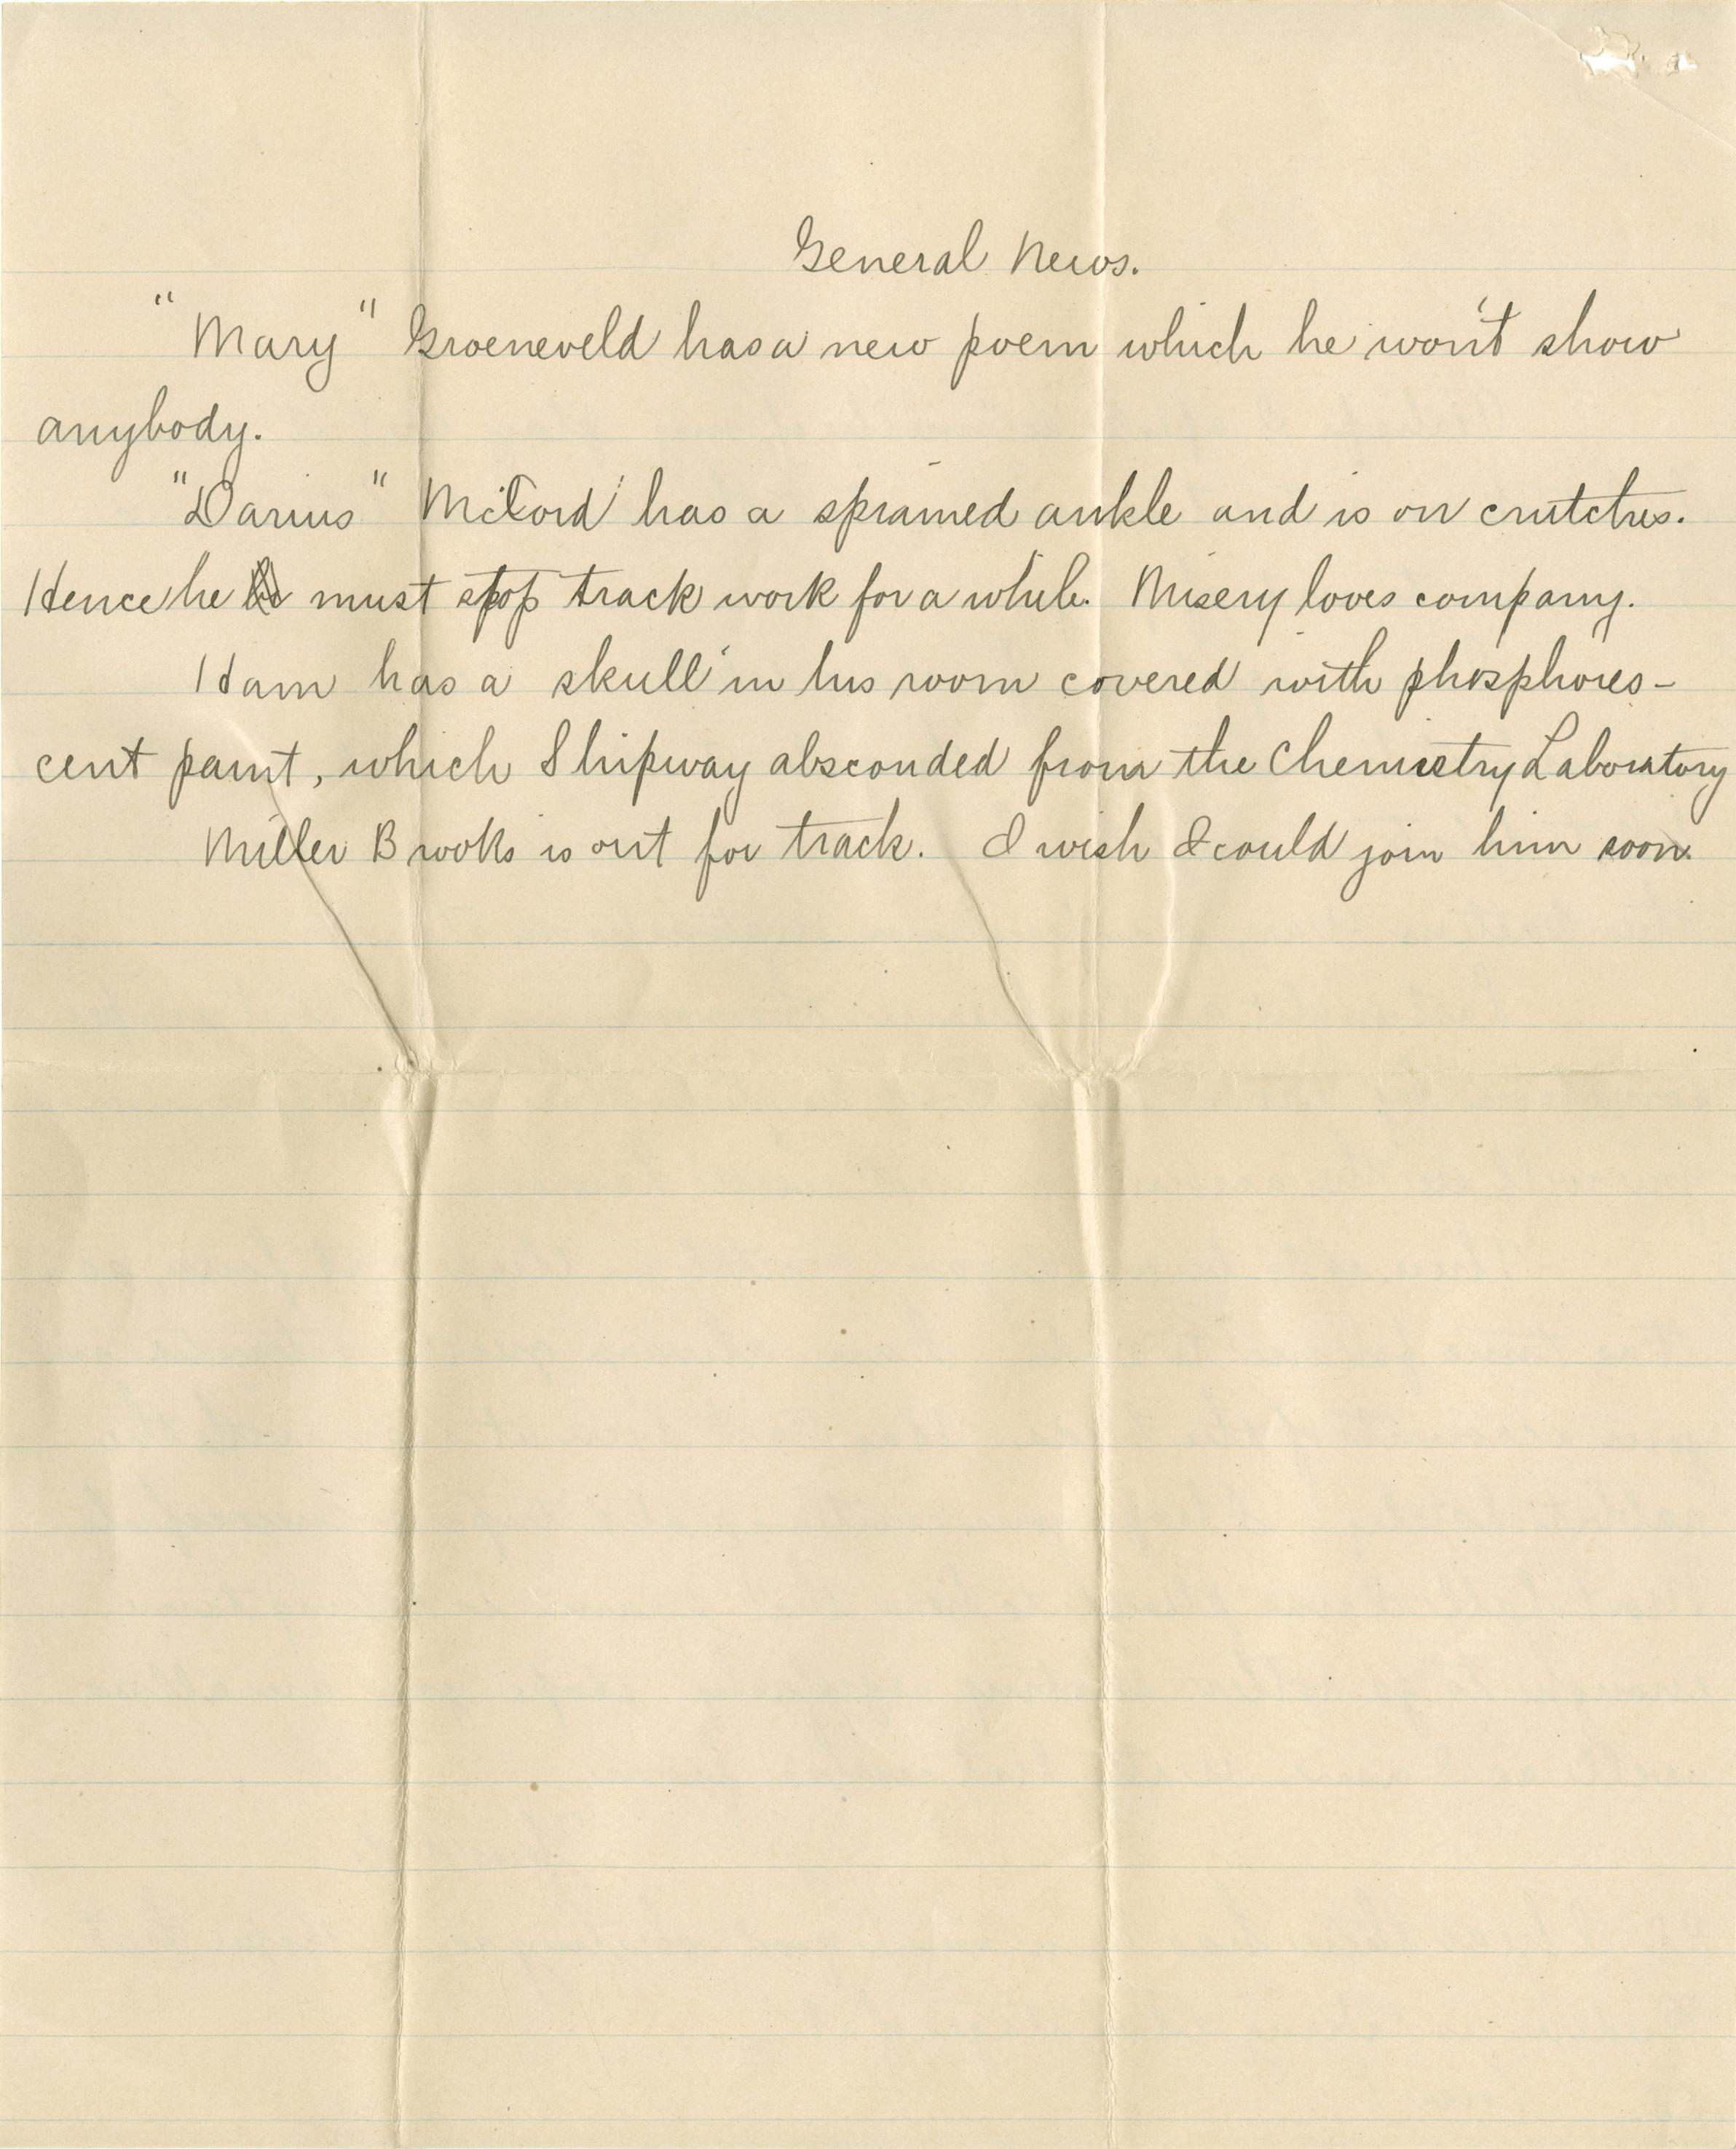 General News.
"Mary" Groeneveld has a new poem which he won't show
anybody.
"Darius" McCord has a sprained ankle and is on crutches.
Hence he must stop track work for a while. Misery loves company.
Ham has a skull in his room covered with phosphores-
cent paint, which Shipway absconded from the Chemistry Laboratory
Miller Brooks is out for track. I wish I could join him soon.